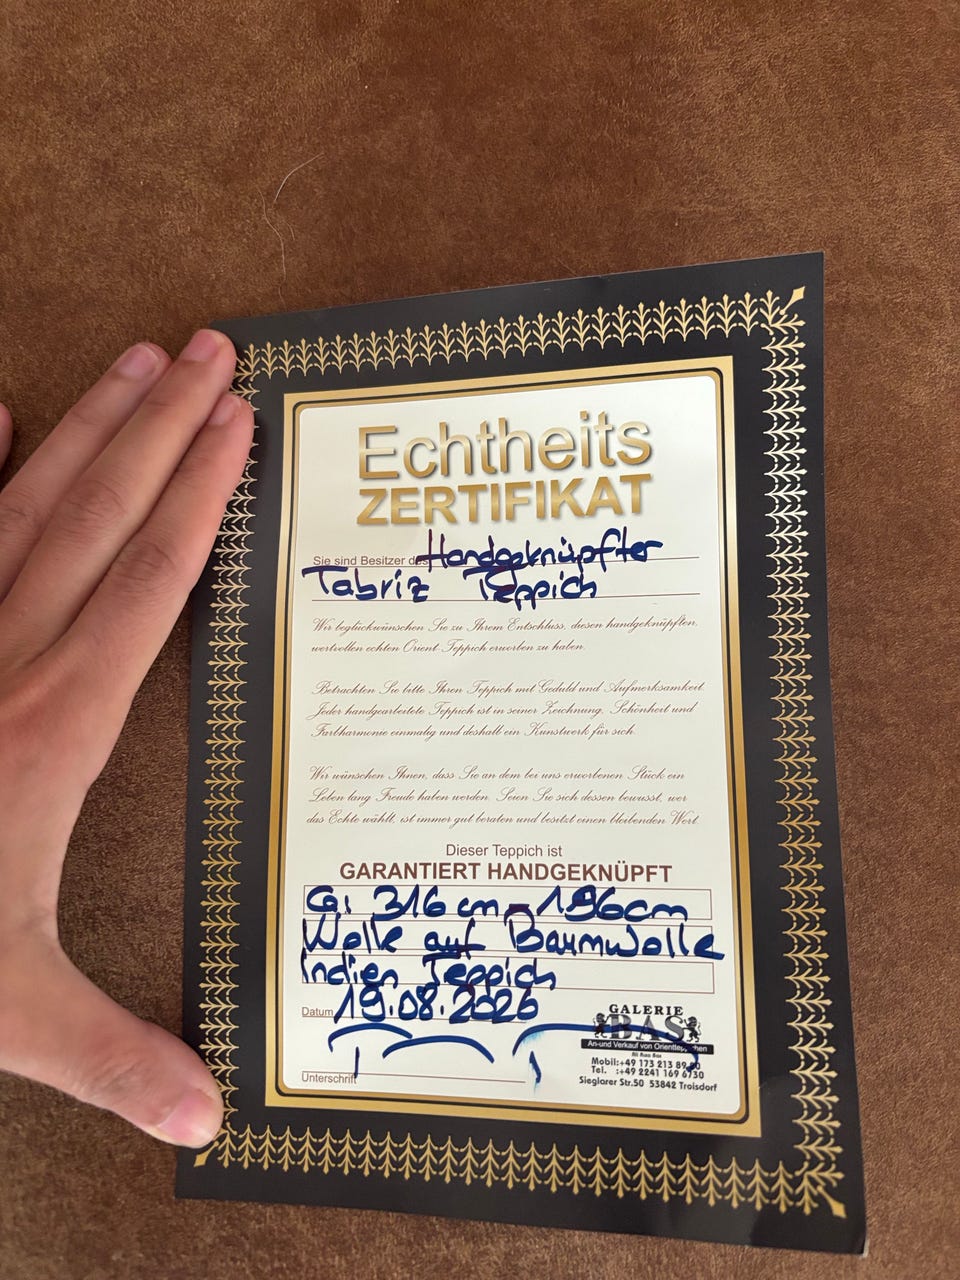 Echtheits
ZERTIFIKAT
Sie sind Besitzer des Handgeknüpfter
Tabriz Teppich
Wir beglückwünschen Sie zu Ihrem Entschluss, diesen handgeknüpften,
wertvollen echten Orient-Teppich erworben zu haben.
Betrachten Sie bitte Ihren Teppich mit Geduld und Aufmerksamkeit.
Jeder handgearbeitete Teppich ist in seiner Zeichnung, Schönheit und
Farbharmonie einmalig und deshalb ein Kunstwerk für sich.
Wir wünschen Ihnen, dass Sie an dem bei uns erworbenen Stück ein
Leben lang Freude haben werden. Seien Sie sich dessen bewusst, wer
das Echte wählt, ist immer gut beraten und besitzt einen bleibenden Wert.
Dieser Teppich ist
GARANTIERT HANDGEKNÜPFT
316 cm - 196cm
Wolle auf Baumwolle
Indien Teppich
Datum 19.08.2026
GALERIE
BAS
An-und Verkauf von Orientteppichen
Mobil:+49 173 213 89
Tel. :+49 2241 169 6730
Sieglarer Str.50 53842 Troisdorf
Unterschrift